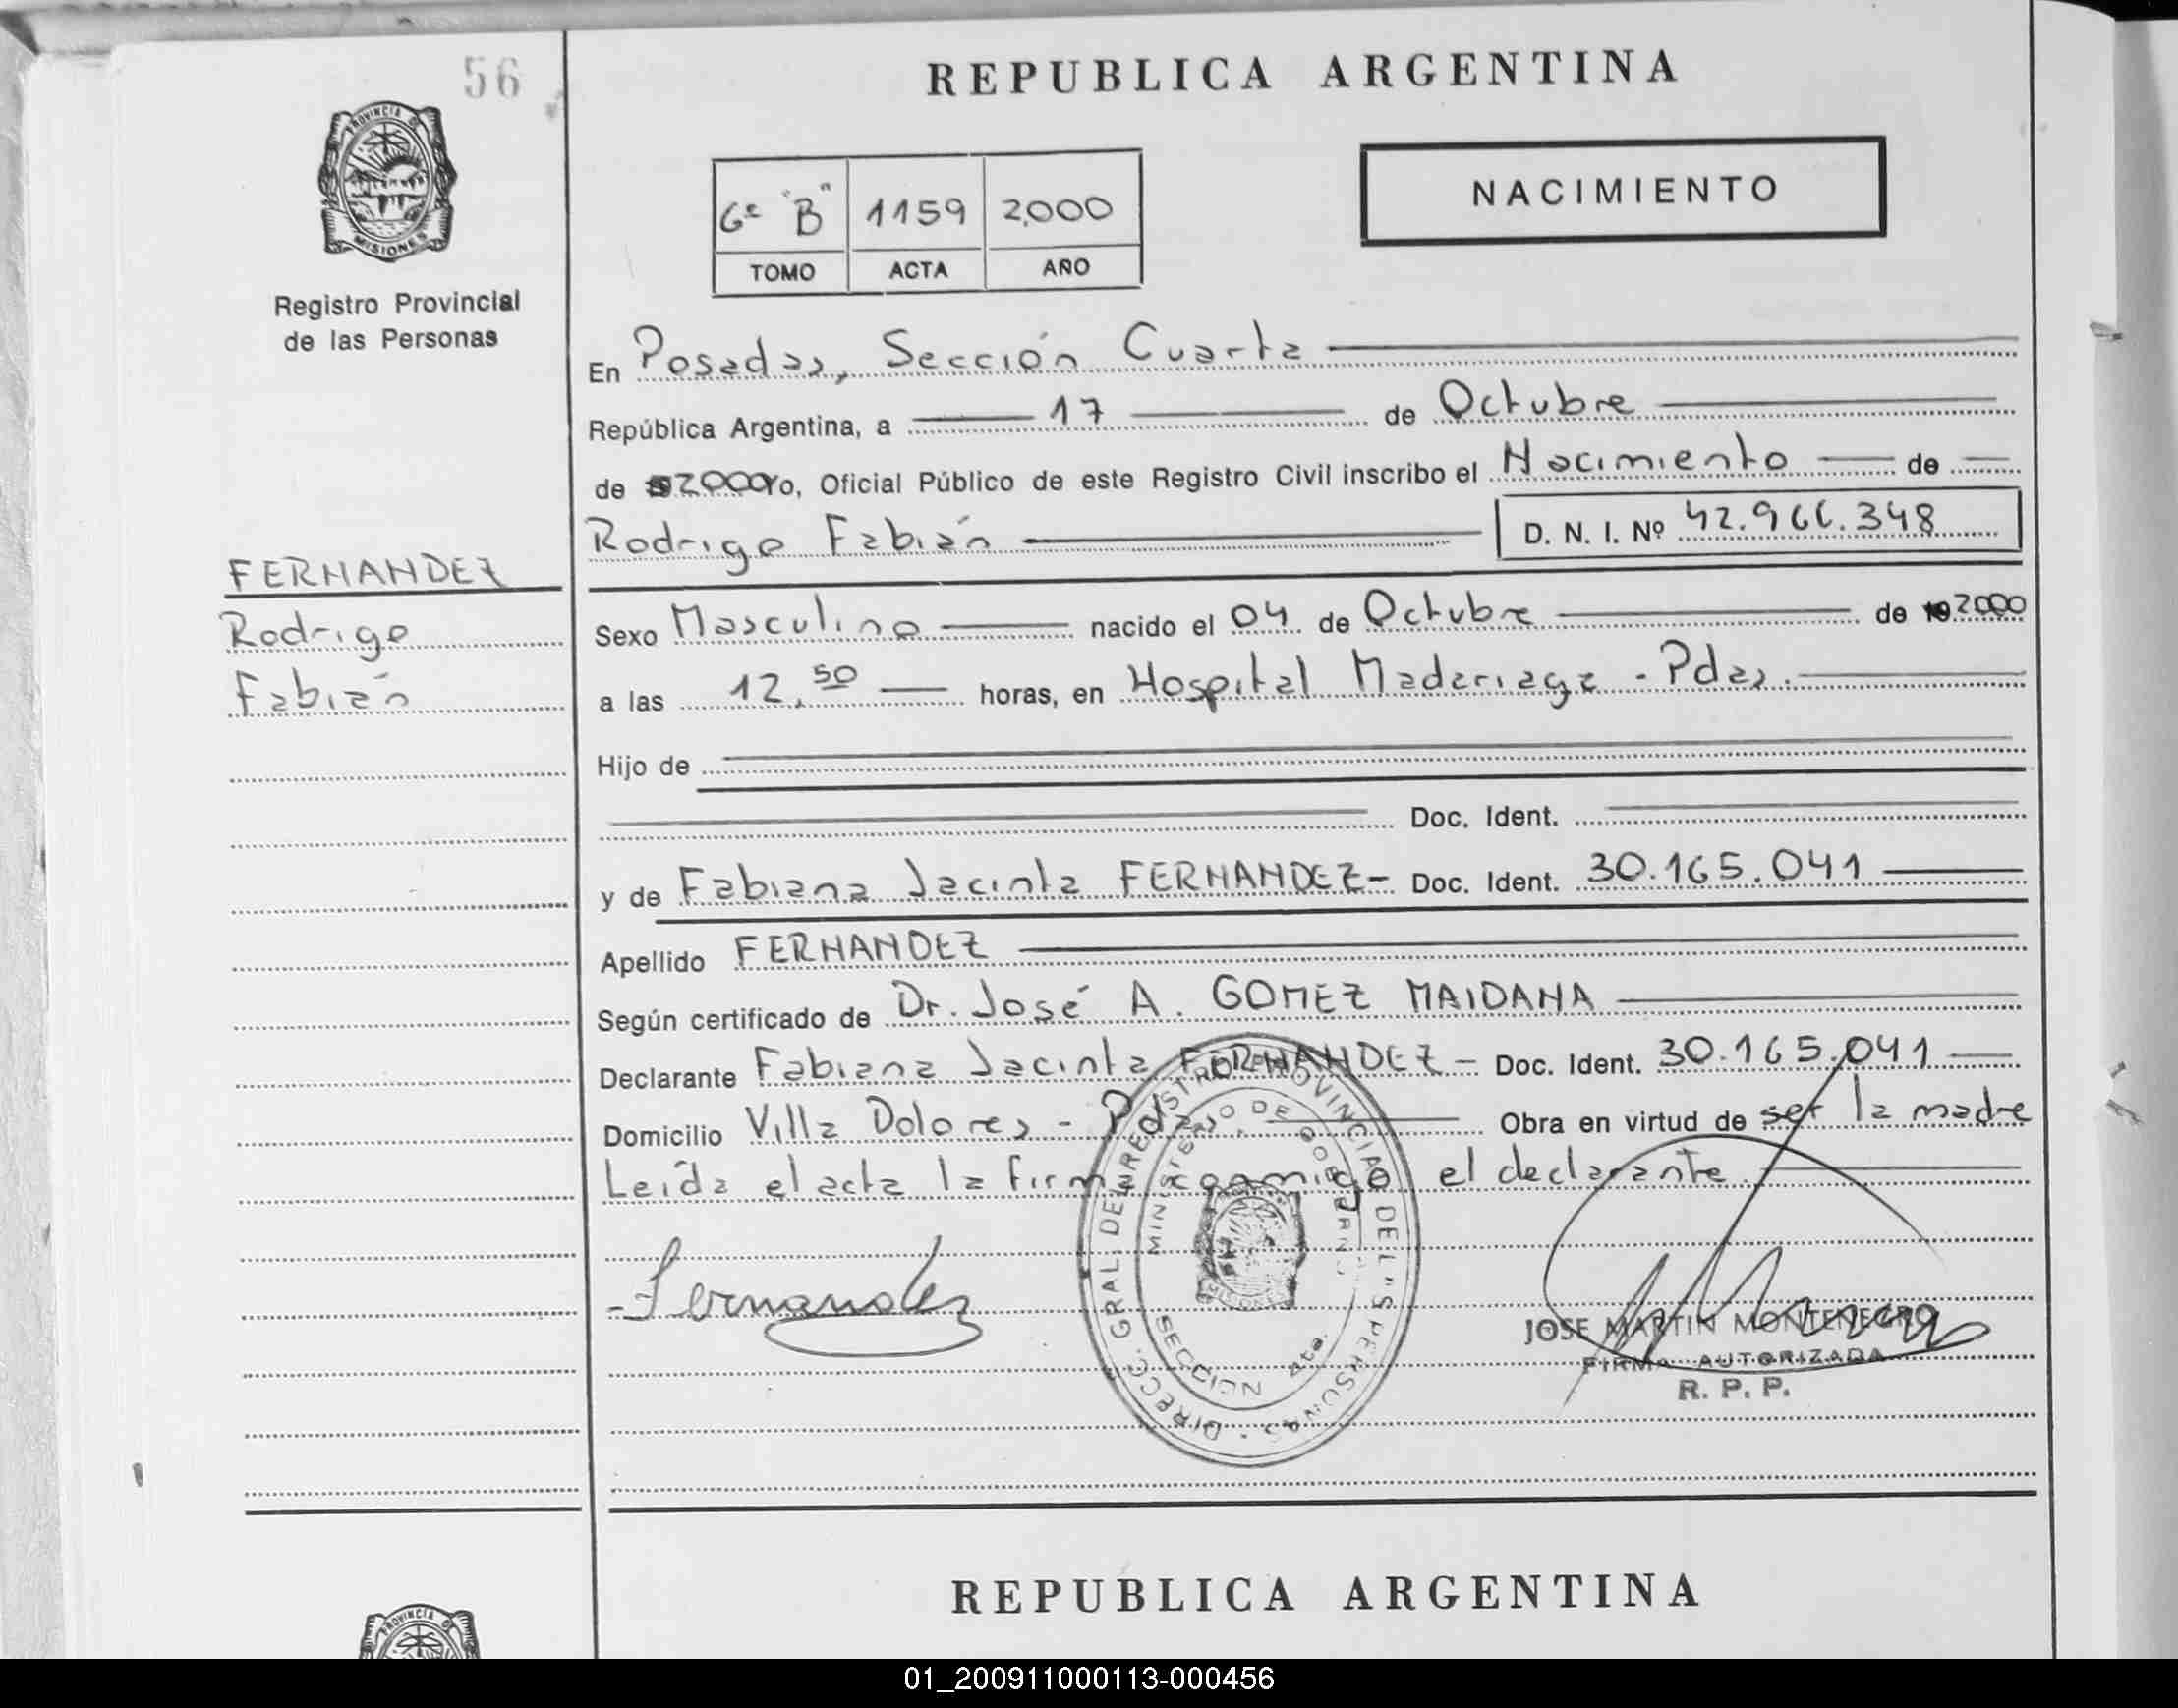 56
REPUBLICA ARGENTINA
PROVINCIA DE
MISIONES
Registro Provincial
de las Personas
6º "B" 1159 2,000
TOMO ACTA AÑO
NACIMIENTO
En Posadas, Sección Cuarta
República Argentina, a 17 de Octubre
de 2000 yo, Oficial Público de este Registro Civil inscribo el Nacimiento de
Rodrigo Fabián D. N. I. Nº 42.966.348
FERNANDEZ
Rodrigo
Fabián
Sexo Masculino nacido el 04 de Octubre de 192000
a las 12,50 horas, en Hospital Madariaga - Pdas.
Hijo de
Doc. Ident.
y de Fabiana Jacinta FERNANDEZ - Doc. Ident. 30.165.041
Apellido FERNANDEZ
Según certificado de Dr. José A. GOMEZ MAIDANA
Declarante Fabiana Jacinta FERNANDEZ - Doc. Ident. 30.165.041
Domicilio Villa Dolores - Pdas. Obra en virtud de ser la madre
Leída el acta la firma conmigo el declarante.
Fernandez
DIRECC. GRAL. DEL REGISTRO PROVINCIAL DE LAS PERSONAS
MINISTERIO DE GOBIERNO
SECCION 4ta.
JOSE MARTIN MONTENEGRO
FIRMA AUTORIZADA
R. P. P.
REPUBLICA ARGENTINA
PROVINCIA DE
01_200911000113-000456